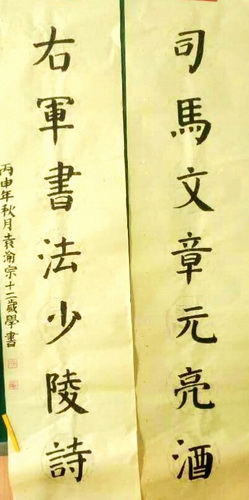 司馬文章元亮酒
右軍書法少陵詩
丙申年秋月袁渝宗十二歲學書